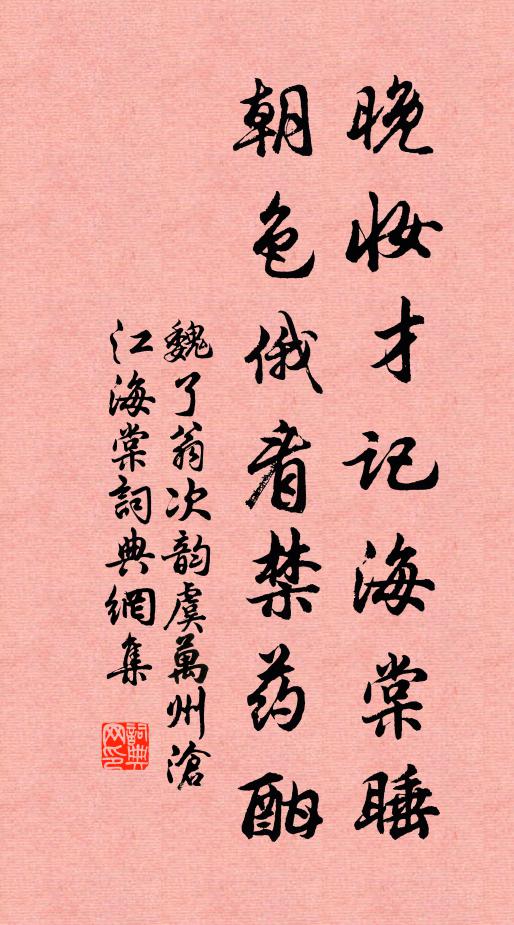 晚妆才记海棠睡
朝色俄看禁药酣
魏了翁次韵虞萬州滄
江海棠詞典網集
詞典
网印